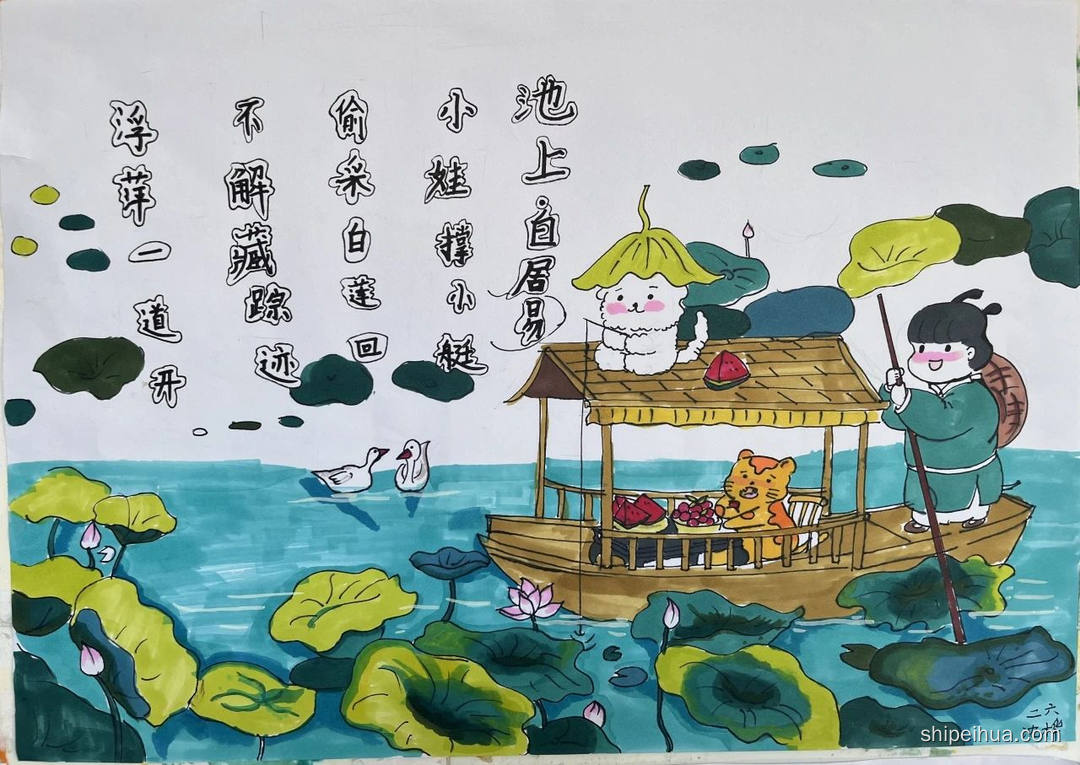 池上 自居易
小娃撑小艇
偷采白莲回
不解藏踪迹
浮萍一道开
shipeihua.com